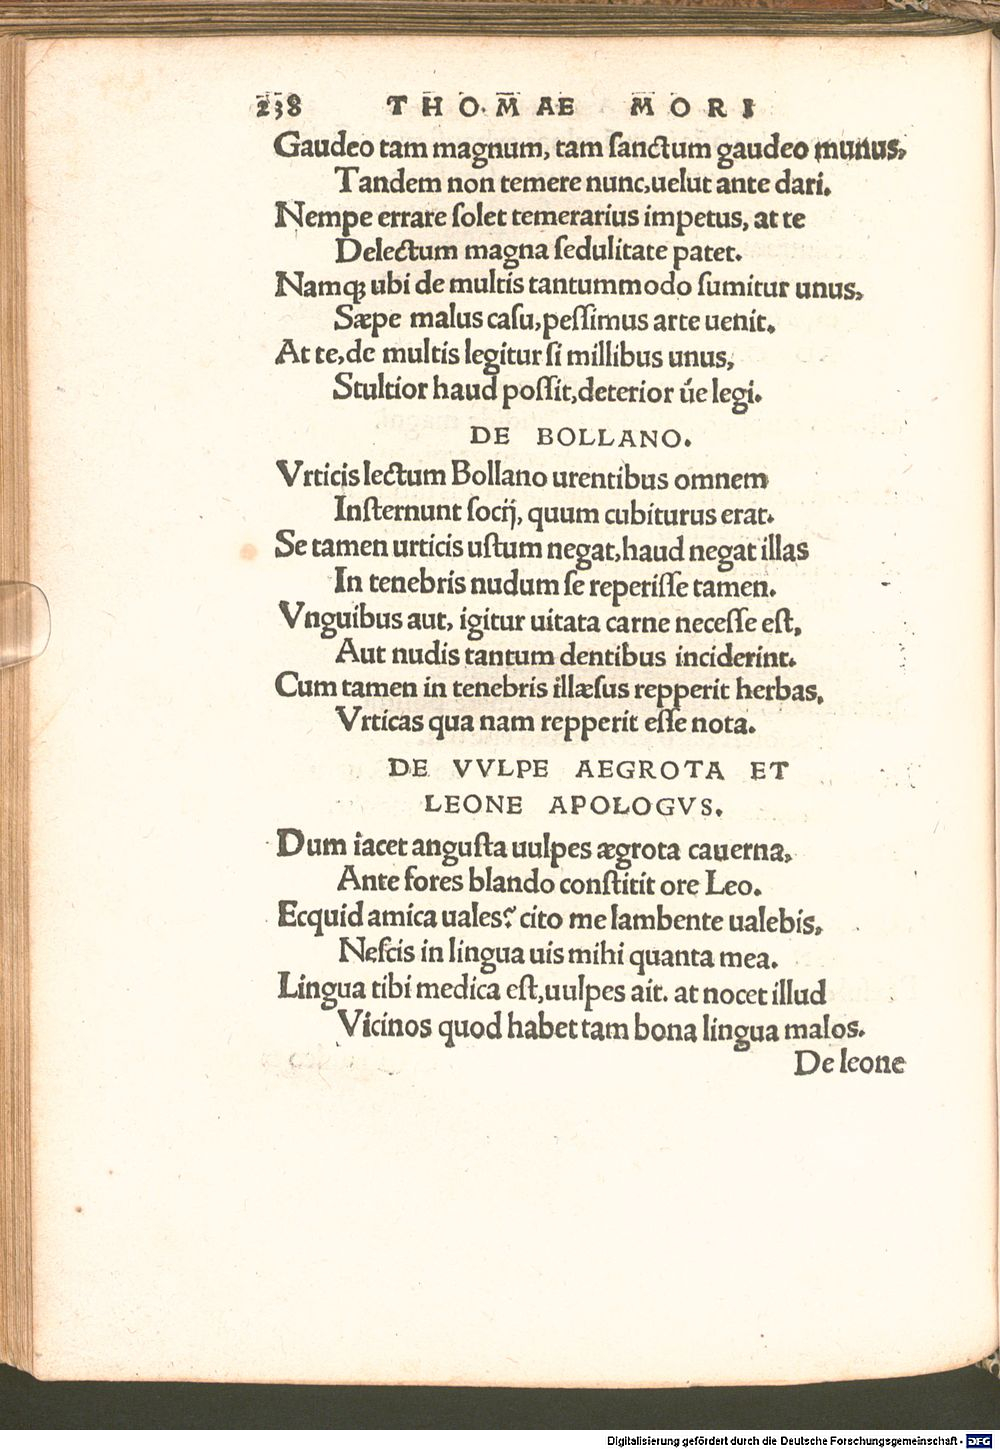 238 THOMAE MORI
Gaudeo tam magnum, tam ſanctum gaudeo munus,
Tandem non temere nunc, uelut ante dari.
Nempe errare ſolet temerarius impetus, at te
Delectum magna ſedulitate patet.
Namq; ubi de multis tantummodo ſumitur unus,
Sæpe malus caſu, peſſimus arte uenit.
At te, de multis legitur ſi millibus unus,
Stultior haud poſſit, deterior úe legi.
DE BOLLANO.
Vrticis lectum Bollano urentibus omnem
Inſternunt ſocij, quum cubiturus erat.
Se tamen urticis uſtum negat, haud negat illas
In tenebris nudum ſe reperiſſe tamen.
Vnguibus aut, igitur uitata carne neceſſe eſt,
Aut nudis tantum dentibus inciderint.
Cum tamen in tenebris illæſus repperit herbas,
Vrticas qua nam repperit eſſe nota.
DE VVLPE AEGROTA ET
LEONE APOLOGVS.
Dum iacet anguſta uulpes ægrota cauerna,
Ante fores blando conſtitit ore Leo.
Ecquid amica uales? cito me lambente ualebis,
Neſcis in lingua uis mihi quanta mea.
Lingua tibi medica eſt, uulpes ait. at nocet illud
Vicinos quod habet tam bona lingua malos.
De leone
Digitalisierung gefördert durch die Deutsche Forschungsgemeinschaft - DFG